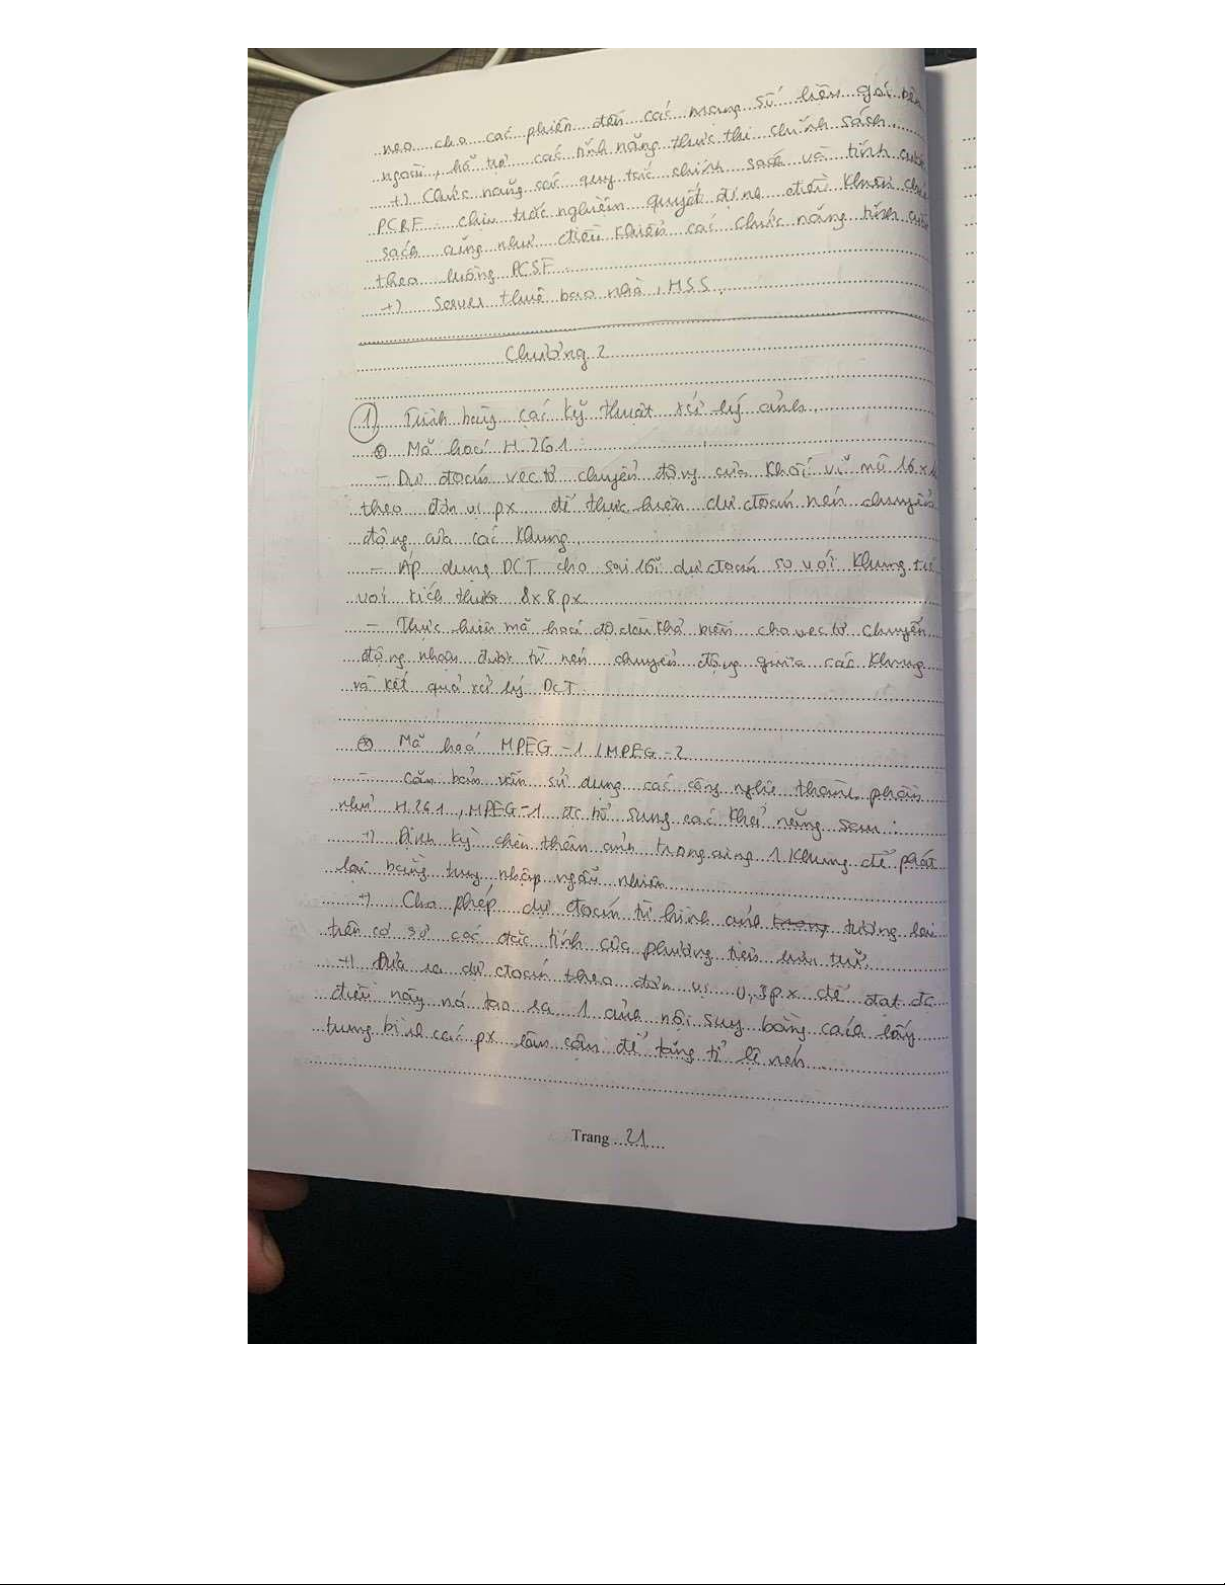 neo cho các phiên đến các mạng số liệu gói bên
ngoài, hỗ trợ các tính năng thực thi chính sách.
+) Chức năng các quy tắc chính sách và tính cước
PCRF: chịu trách nghiệm quyết định điều khiển chí
sách cũng như điều khiển các chức năng tính cước
theo luồng PCSF.
+) Server thuê bao nhà, HSS.
Chương 2
1) Trình bày các kỹ thuật xử lý ảnh.
⊗ Mã hoá H.261:
- Dự đoán vectơ chuyển động của khối vĩ mô 16x1
theo đơn vị px để thực hiện dự đoán nén chuyển
động của các khung.
- Áp dụng DCT cho sai lỗi dự đoán so với khung
với kích thước 8x8 px
- Thực hiện mã hoá độ dài khả biến cho vectơ chuyển
động nhận được từ nén chuyển động giữa các khung
và kết quả xử lý DCT.
⊗ Mã hoá MPEG-1 / MPEG-2
- Căn bản vẫn sử dụng các công nghệ thành phần
như H.261, MPEG-1 đc bổ sung các khả năng sau:
+) Định kỳ chèn thêm ảnh trong cùng 1 khung để phát
lại bằng truy nhập ngẫu nhiên
+) Cho phép dự đoán từ hình ảnh trong tương lai
trên cơ sở các đặc tính của phương tiện lưu trữ.
+) Đưa ra dự đoán theo đơn vị 0,5px để đạt đc
điều này nó tạo ra 1 ảnh nội suy bằng cách lấy
trung bình các px lân cận để tăng tỉ lệ nén.
Trang 21